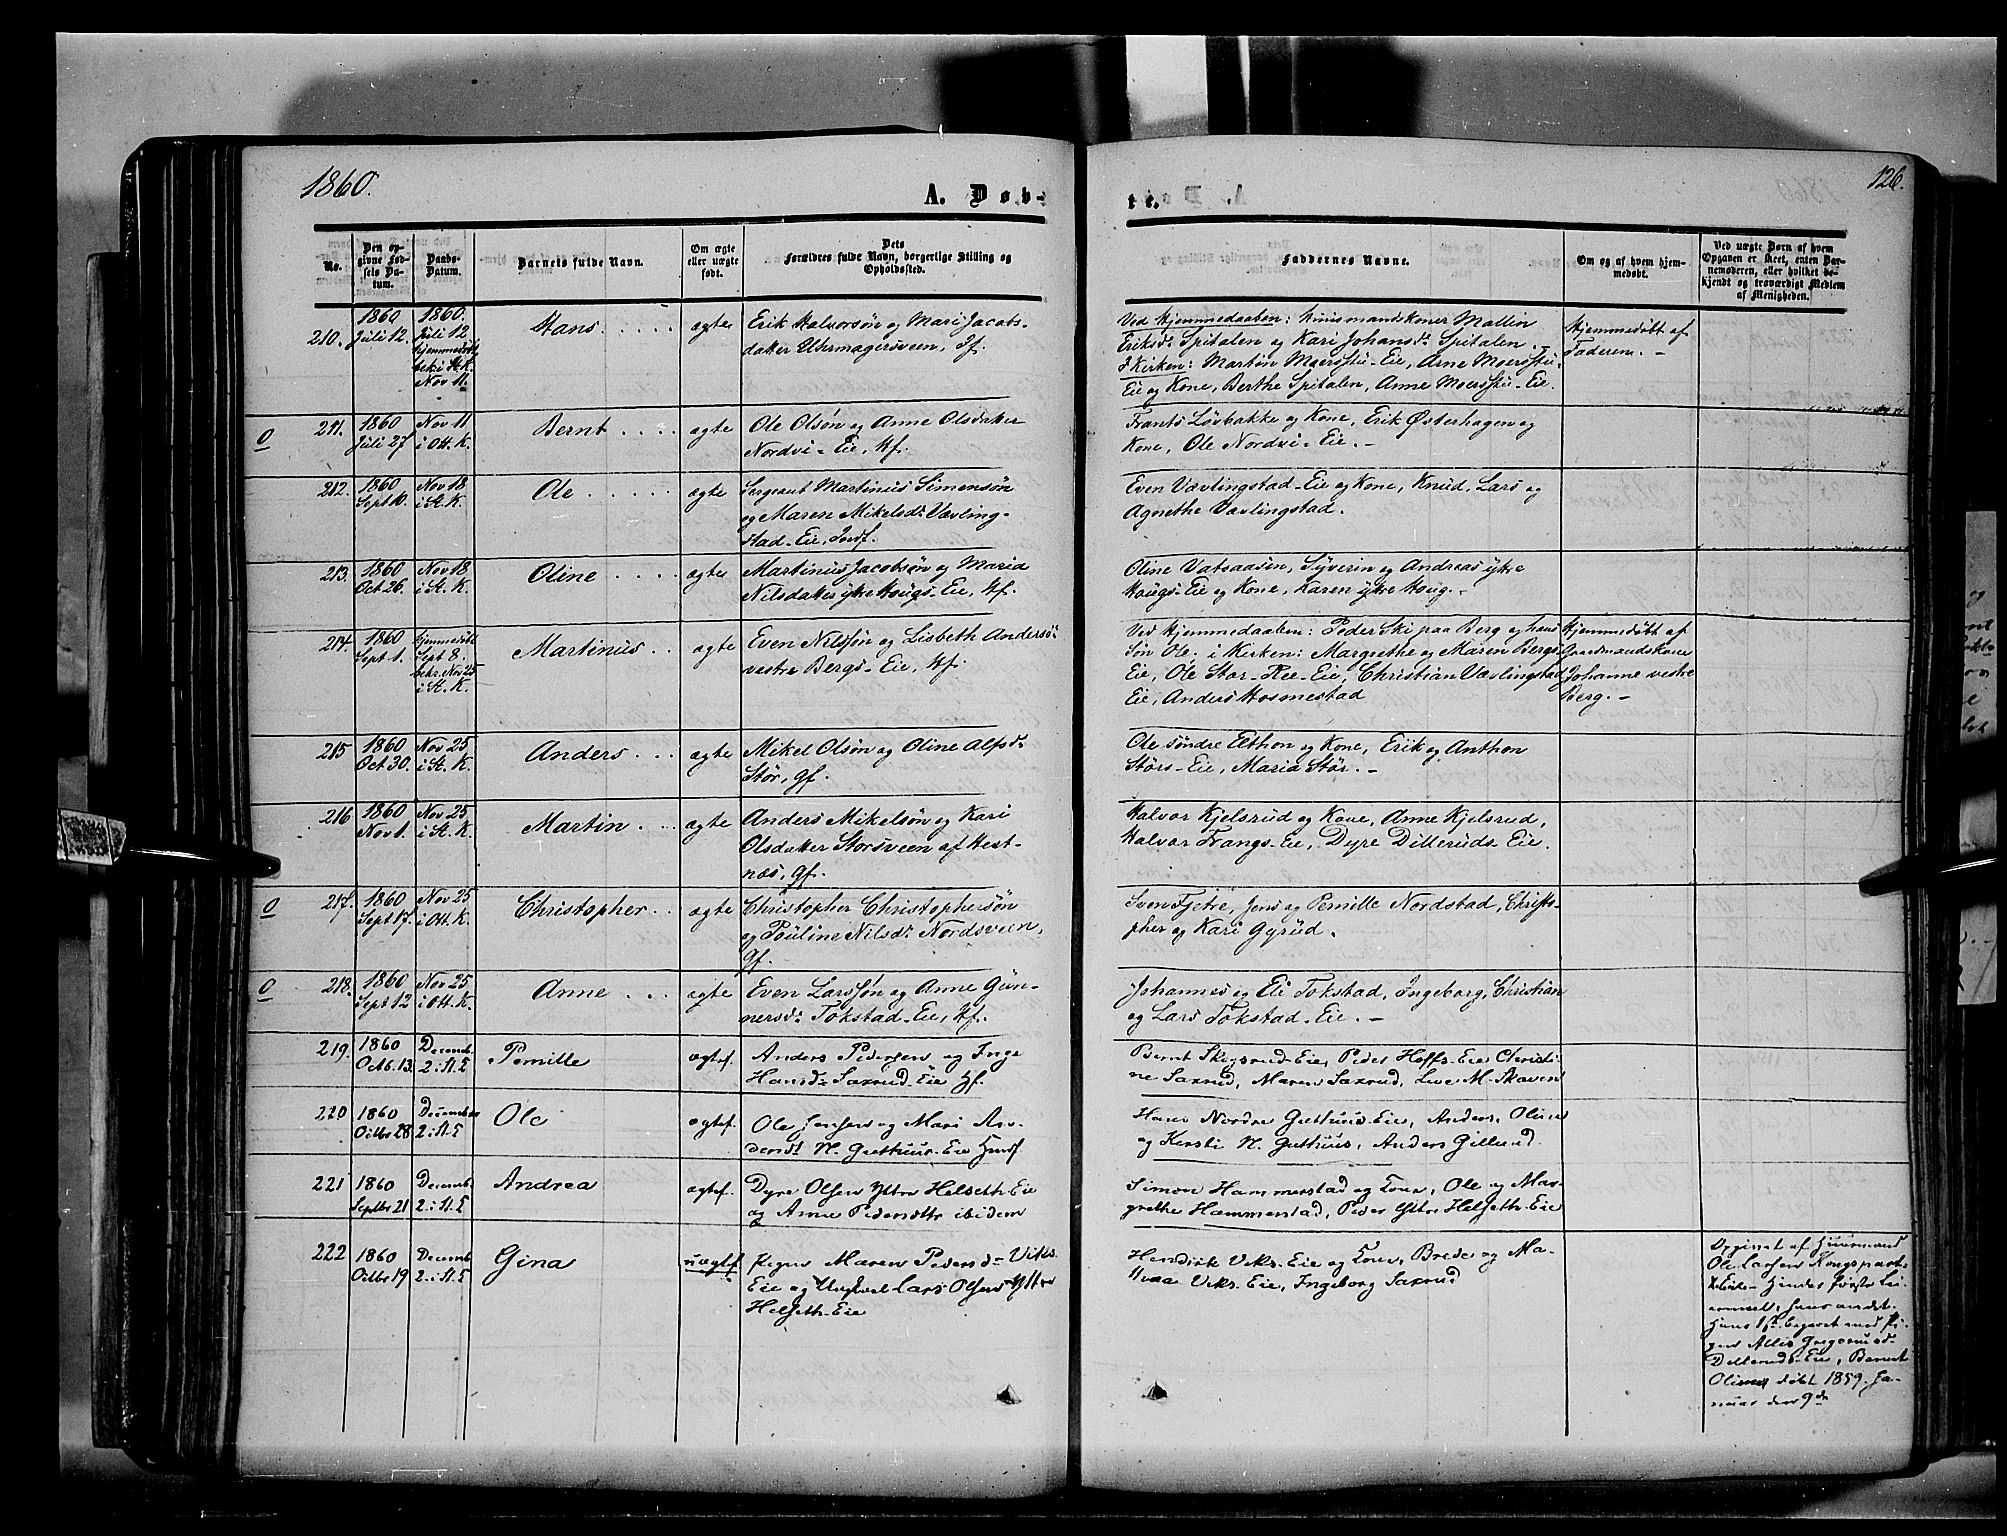 1860.
A. Døb-
te.
126.
No.
Den op-
givne Fød-
sels Da-
tum.
Daabs-
Datum.
Barnets fulde Navn.
Om ægte
eller uægte
født.
Dets
Forældres fulde Navn, borgerlige Stilling og
Opholdssted.
Faddernes Navne.
Om og af hvem hjem-
medøbt.
Ved uægte Børn af hvem
Opgaven er skeet, enten Bar-
nemoderen, eller hvilket be-
kjendt og troværdigt Medlem
af Menigheden.
210.
1860
Juli 12.
1860.
Juli 12
hjemmedøbt
i St. K.
Nov 11.
Hans
ægte
Erik Halvorsøn og Mari Jacobs-
datter Uhrmagersveen, If.
Ved Hjemmedaaben: Huusmandskoner Mallin
Eriksd: Spitalen og Kari Johansd: Spitalen.
I Kirken: Martin Moersstu-Eie, Arne Moersstu-
Eie og Kone, Berthe Spitalen, Anne Moersstu-Eie.
Hjemmedøbt af
Faderen. -
0
211.
1860
Juli 27
Nov 11
i Ott. K.
Bernt
ægte
Ole Olsøn og Anne Olsdatter
Nordvi-Eie, Hf.
Frants Løvbakke og Kone, Erik Østerhagen og
Kone, Ole Nordvi-Eie. -
212.
1860
Sept 10.
Nov 18
i St. K.
Ole
ægte
Sergeant Martinus Simensøn
og Maren Mikelsd: Vævling-
stad-Eie, Jordf.
Even Vævlingstad-Eie og Kone, Knud, Lars og
Agnethe Vævlingstad.
213.
1860
Oct 26.
Nov 18
i St. K.
Oline
ægte
Martinus Jacobsøn og Maria
Nilsdatter ytre Hougs-Eie, Hf.
Oline Vatsaasen, Syverin og Andreas ytre
Hougs-Eie og Kone, Karen ytre Houg. -
214.
1860
Sept 1.
Hjemmedøbt
Sept 8.
bekr. Nov 25
i St. K.
Martinus
ægte
Even Nilssøn og Lisbeth Andersd:
vestre Bergs-Eie, Hf.
Ved Hjemmedaaben: Peder Ski paa Berg og hans
Søn Ole. i Kirken: Margrethe og Maren Bergs
Eie, Ole Stor-Ree-Eie, Christian Vævlingstad
Eie, Anders Hosmestad
Hjemmedøbt af
Gaardmandskone
Johanne vestre
Berg. -
215
1860
Oct 30.
Nov 25
i St. K.
Anders
ægte
Mikel Olsøn og Oline Alfsd:
Stør, Gf.
Ole søndre Elthon og Kone, Erik og Anthon
Størs-Eie, Maria Stør. -
216
1860
Nov 1.
Nov 25
i St. K.
Martin
ægte
Anders Mikelsøn og Kari
Olsdatter Storsveen af Hest-
næs, Gf.
Halvor Kjelsrud og Kone, Anne Kjelsrud,
Halvor Frangs-Eie, Dyre Dilleruds Eie.
0
217.
1860
Sept 17.
Nov 25
i Ott. K.
Christopher
ægte
Christopher Christophersøn
og Pouline Nilsd: Nordsveen,
Gf.
Sven Tjetre, Jens og Pernille Nordstad, Christo-
pher og Kari Gyrud.
0
218.
1860
Sept 12
Nov 25
i Ott. K.
Anne
ægte
Even Larssøn og Anne Gun-
nersd: Tokstad-Eie, Hf.
Johannes og Eli Tokstad, Ingeborg, Christian
og Lars Tokstad-Eie. -
219.
1860
Octb. 13.
Decemb.
2. i St. K
Pernille
ægtef.
Anders Pedersen og Inge
Hansd: Saxrud-Eie Hf.
Bernt Skogsrud-Eie, Peder Hoffs-Eie Christi-
ne Saxrud, Maren Saxrud, Live M. Skaven
220
1860
Octbr 28
December
2. i St. K
Ole
ægtef.
Ole Jensen og Mari An-
dersd: N. Gretthuus-Eie Huusf
Hans Nordre Gretthuus-Eie, Anders, Oline
og Kersti N. Gretthuus, Anders Gillund.
221
1860
Septbr 21
Decemb.
2. i St. K
Andrea
ægtef.
Dyre Olsen Yttre Helseth-Eie
og Anne Pedersdttr ibidem
Simon Hammerstad og Kone, Ole og Mar-
grethe Hammerstad, Peder Yttre Helseth-Eie
222
1860
Octbr 19
Decemb
2. i St. K
Gina
uægtef.
Pigen Maren Pedersd: Viks-
Eie og Ungkarl Lars Olsen Yttre
Helseth-Eie
Hendrik Viks-Eie og Kone, Brede og Ma-
Viks-Eie, Ingeborg Saxrud
Opgivet af Huusmand
Ole Larsen
Eie- Hendes første Lei-
ermaal, hans andet.
Hans 1ste begaaet med Pi-
gen
Dilleruds-Eie, Barnet
døbt 1859. Ja-
nuar den 9de